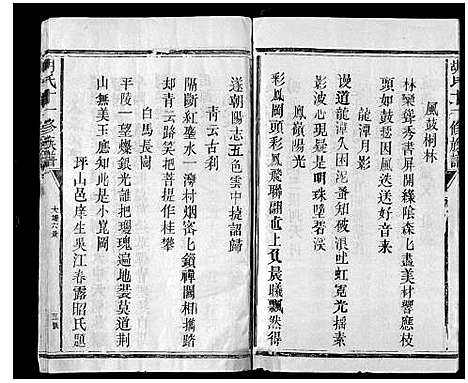 胡氏十一修族譜
風鼓桐林
林欒聳秀書屏開綠陰森匕盡美材響應枝
頭如奏樂因風迭送好音來
龍潭月影
謾道龍潭久困泥蚕知破浪吐虹霓光搖素
影波心現疑是明珠墜碧溪
鳳嶺陽光
彩鳳岡頭彩鳳飛聯翩直上負晨曦飄然得
遂朝陽志五色雲中捷詔歸
青云古刹
却紅塵水一灣村烟客匕鎖禪關相攜踏
却青云路笑把菩提作桂攀
白馬長岡
平陵一望燦銀光誰把瓊瑰遍地裝莫道荆
山無美玉應知此是小崑岡
坪山邑庠生吳江春露昭氏題
胡氏十一修族譜